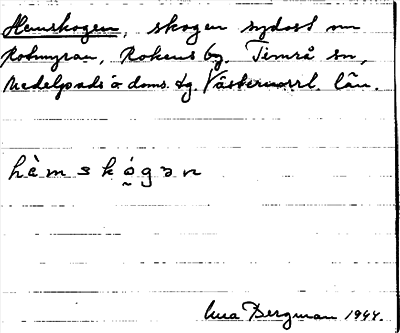 Hemskogen, skogen sydost om
Rotmyran, Rokens by. Timrå sn,
Medelpads ö doms. tg. Västernorrl. län.
hèmskó̰gən
Bergman 1944.